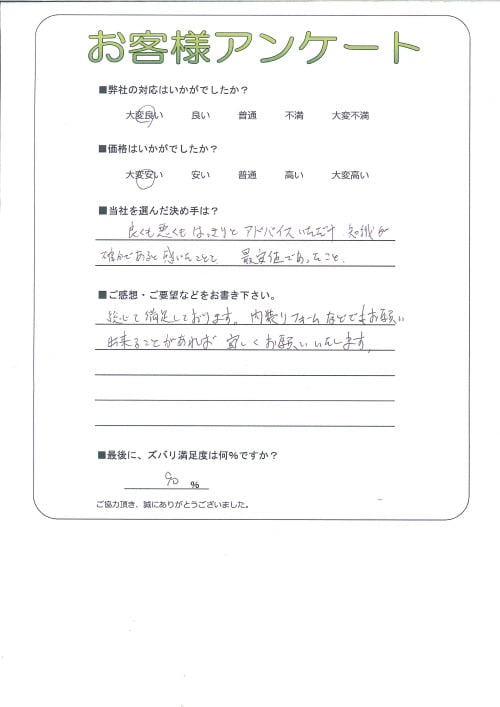 お客様アンケート
■弊社の対応はいかがでしたか？
大変良い 良い 普通 不満 大変不満
■価格はいかがでしたか？
大変安い 安い 普通 高い 大変高い
■当社を選んだ決め手は？
良くも悪くもはっきりと アドバイスいただけ 知識が
確かであると感いたことと 最安値であったこと．
■ご感想・ご要望などをお書き下さい。
総じて満足しております。内装リフォームなどでもお願い
出来ることがあれば 宜しくお願いいたします。
■最後に、ズバリ満足度は何％ですか？
90 ％
ご協力頂き、誠にありがとうございました。